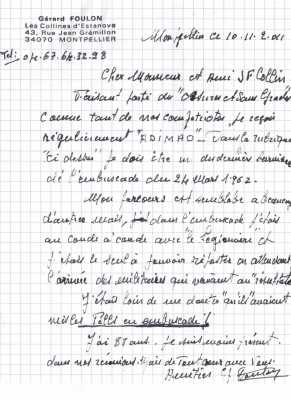 Gérard FOULON
Les Collines d'Estanove
43, Rue Jean Grémillon
34070 MONTPELLIER
Montpellier ce 10.11.2.011
Tel: 04.67.64.32.28
Cher Monsieur et Ami J F Collin
Faisant partie des
comme tant de nos compatriotes, je reçois
régulièrement "ADIMAD". Dans la rubrique
"Ci dessus" je dois être un des derniers
de l'embuscade du 24 Mars 1962.
Mon parcours est semblable à beaucoup
d'autres mais, dans l'embuscade j'étais
au coude à coude avec "le Légionnaire" et
j'étais le seul à pouvoir riposter en attendant
l'arrivée des militaires qui venaient au
J'étais loin de me douter qu'ils avaient
mis les en embuscade!
J'ai 87 ans. je suis moins présent
dans nos réunions mais de tout cœur avec vous.
Amitiés